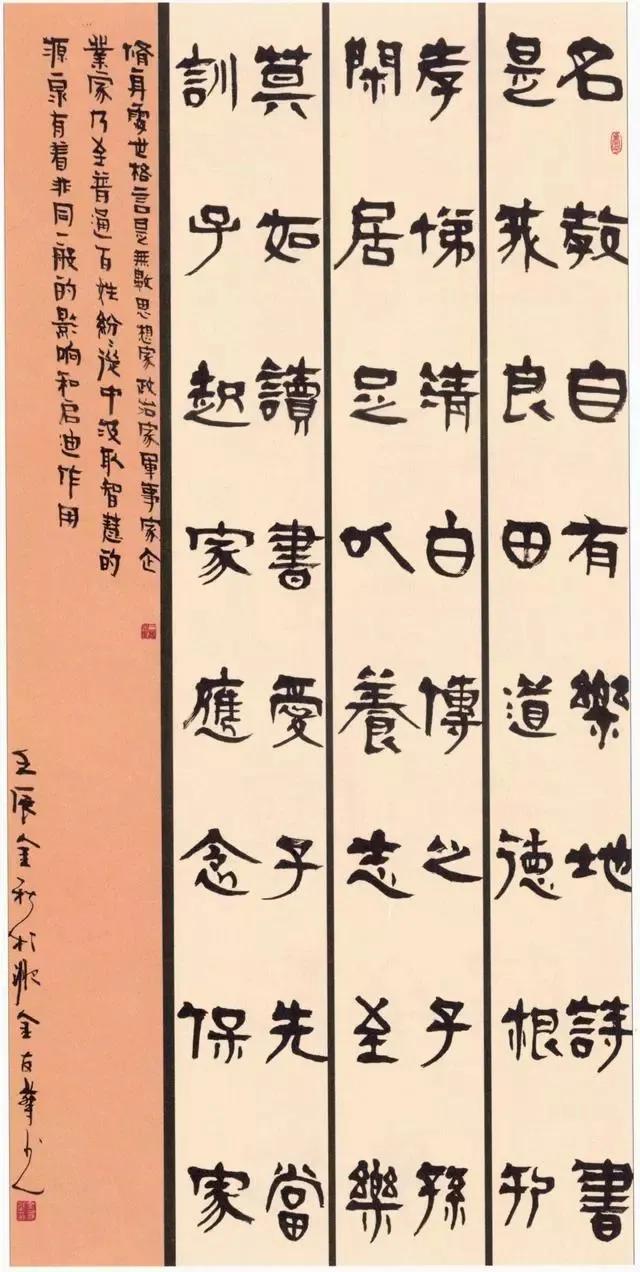 名教自有樂地詩書
是我良田道德根
孝悌清白傳之子孫
閑居足以養志至樂
莫如讀書愛子先當
訓子起家應念保家
脩身處世格言是無數思想家政治家軍事家企
業家乃至普通百姓紛紛從中汲取智慧的
源泉有着非同一般的影响和启迪作用
壬辰金秋於肥